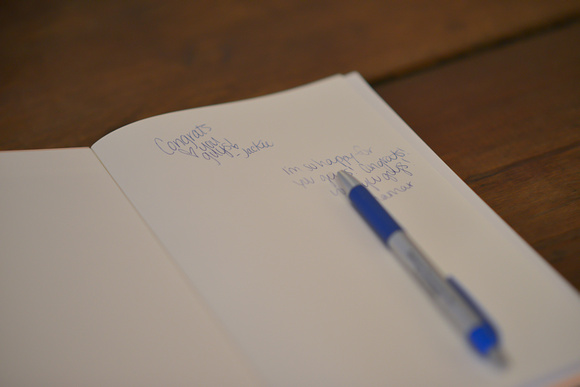 Congrats
♡ you
guys!
- Jackie
I'm so happy for
you guys! Congrats!
you guys